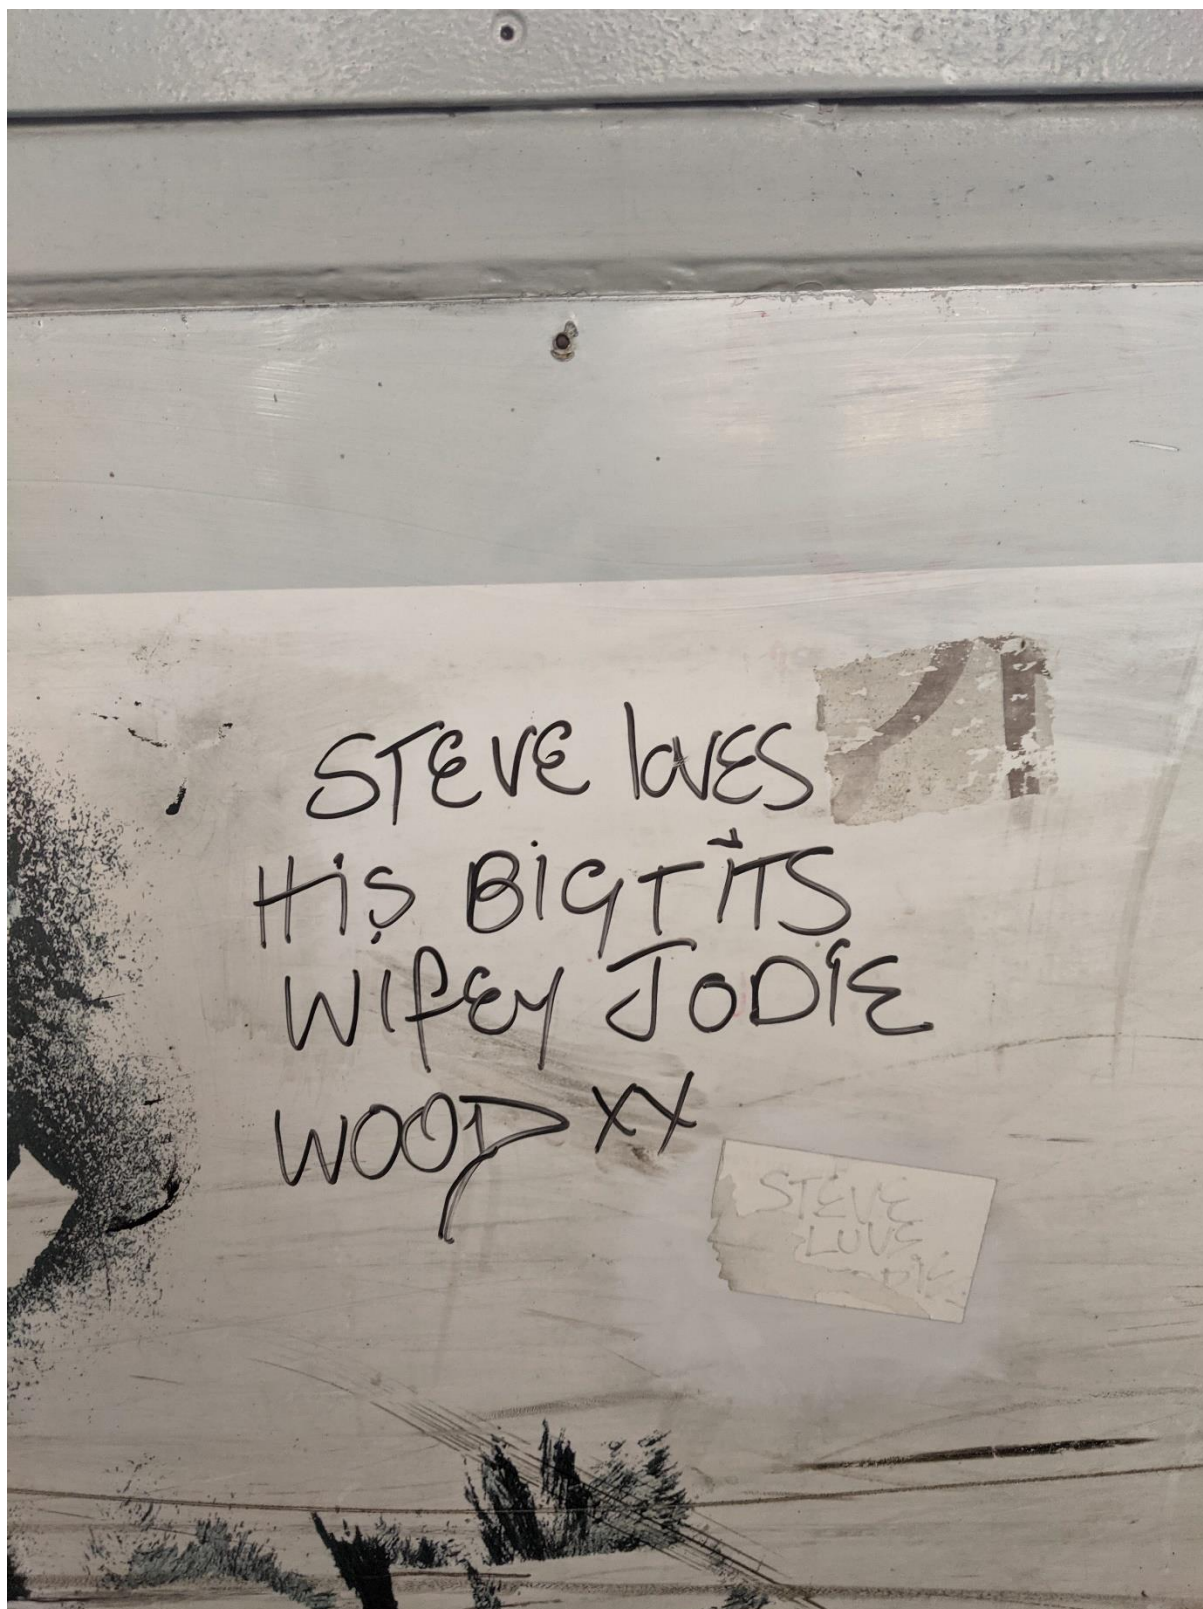 STEVE loVES
His BiG TiTS
WifEy JODiE
WOOD XX
STEVE
LUVE